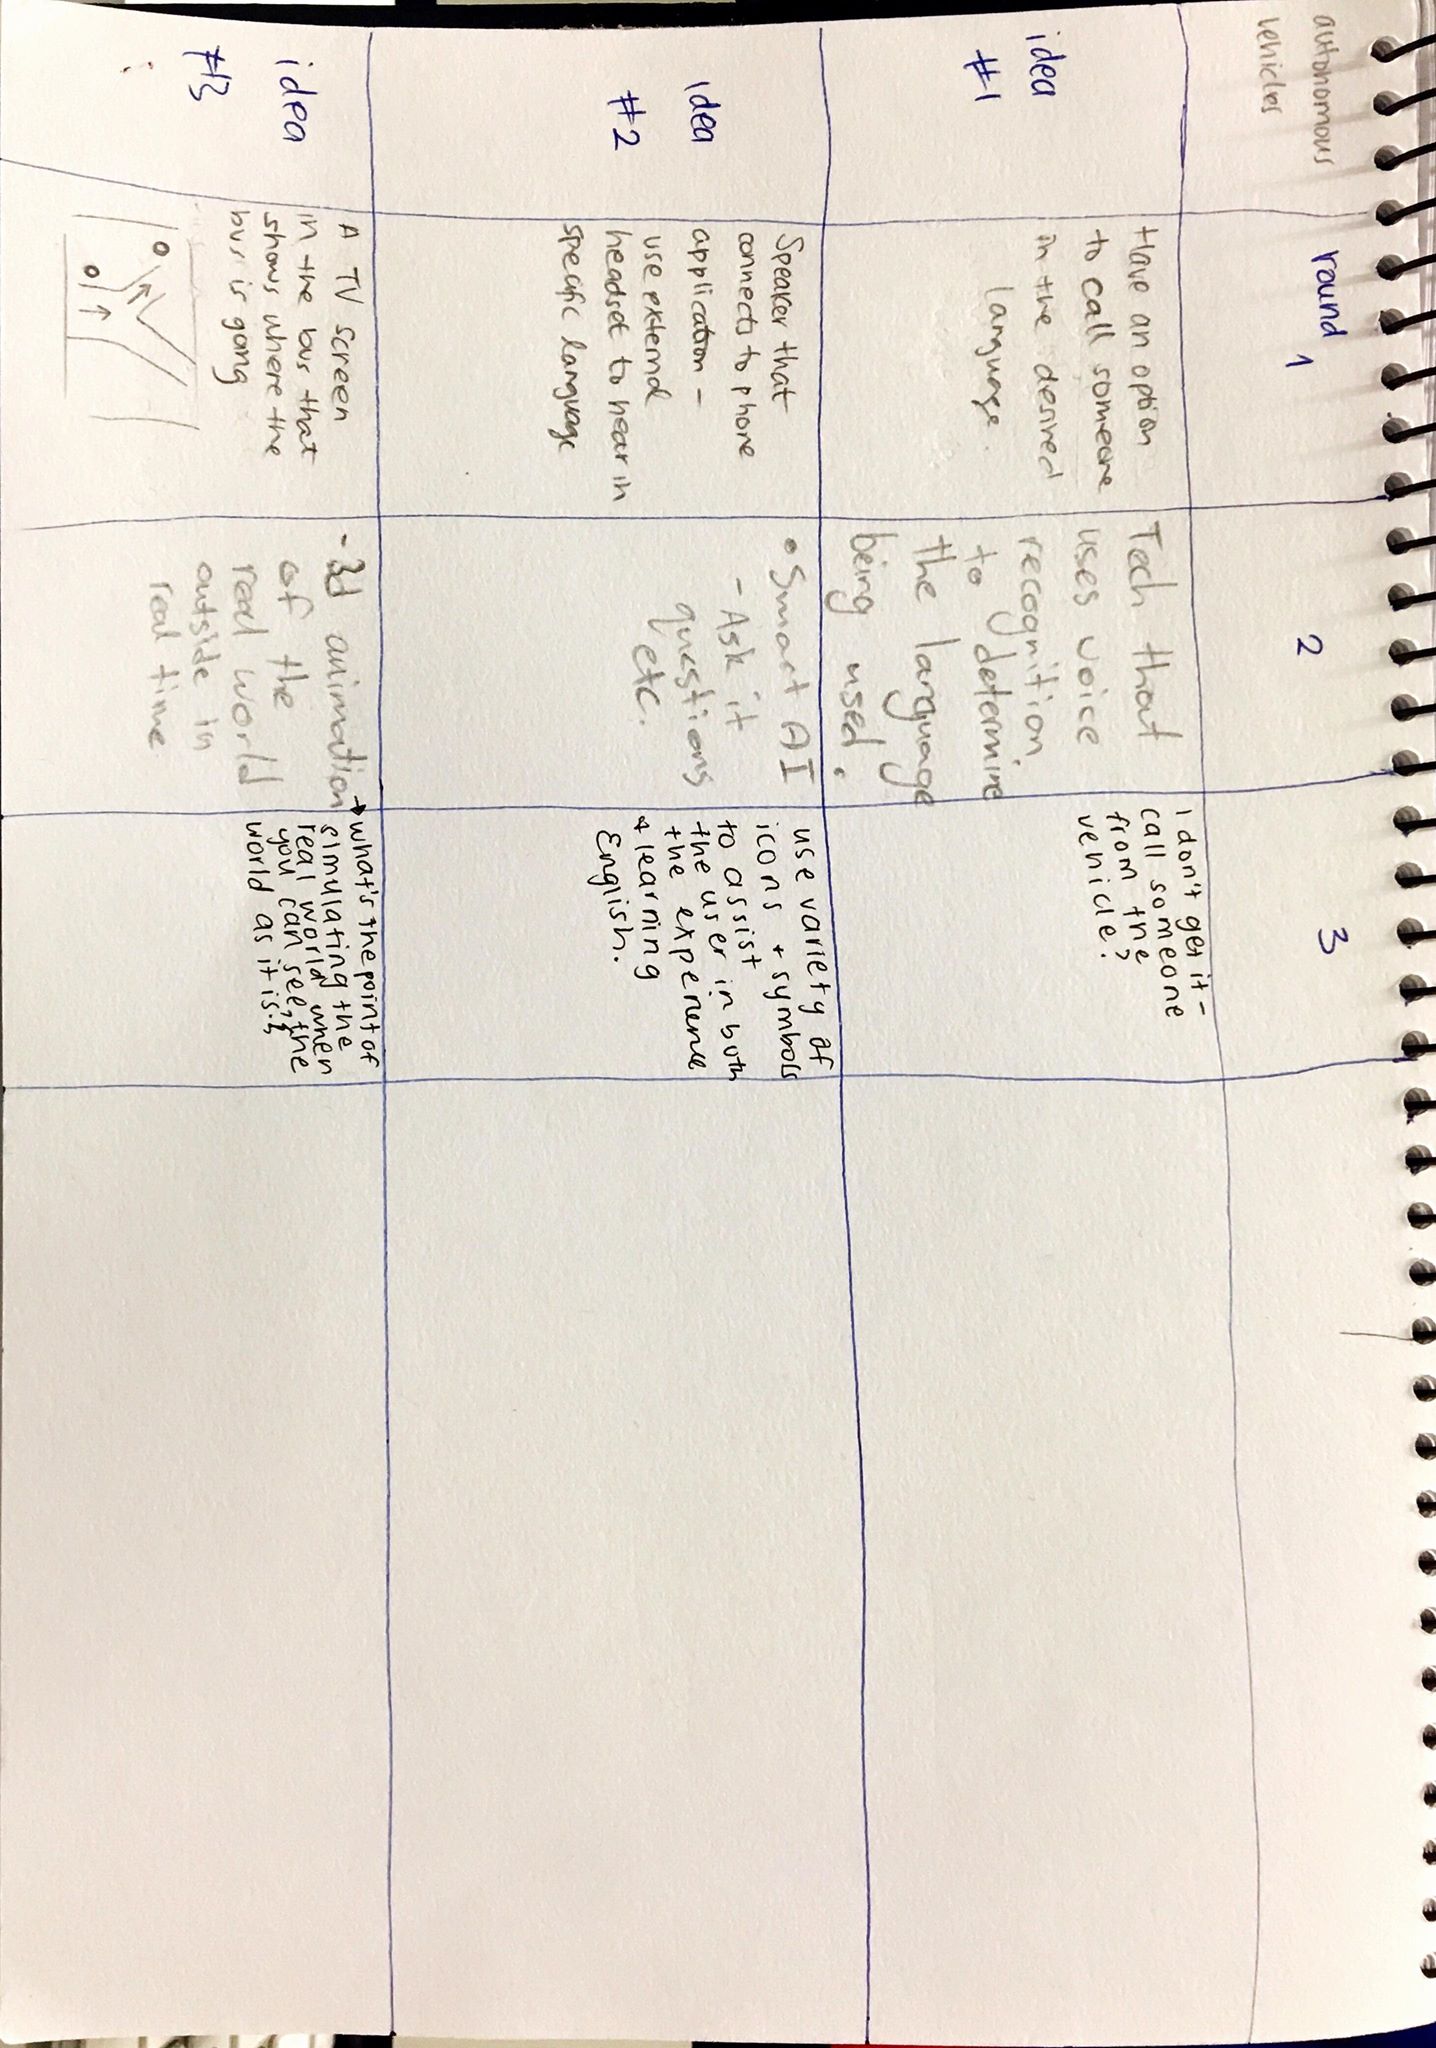 autonomous
vehicles
round
1
2
3
idea
#1
Have an option
to call someone
in the desired
language.
Tech that
uses voice
recognition
to determine
the language
being used.
I don't get it -
call someone
from the
vehicle?
idea
#2
Speaker that
connects to phone
application -
use external
headset to hear in
specific language
• Smart AI
- Ask it
questions
etc.
use variety of
icons + symbols
to assist
the user in both
the experience
& learning
English.
idea
#3
A TV screen
in the bus that
shows where the
bus is going
- 3d animation
of the
real world
outside in
real time
→ what's the point of
simulating the
real world when
you can see the
world as it is??